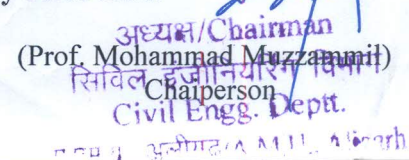 अध्यक्ष/Chairman
(Prof. Mohammad Muzzammil)
सिविल इंजीनियरिंग विभाग
Chaiperson
Civil Engg. Deptt.
अलीगढ़/A.M.U., Aligarh